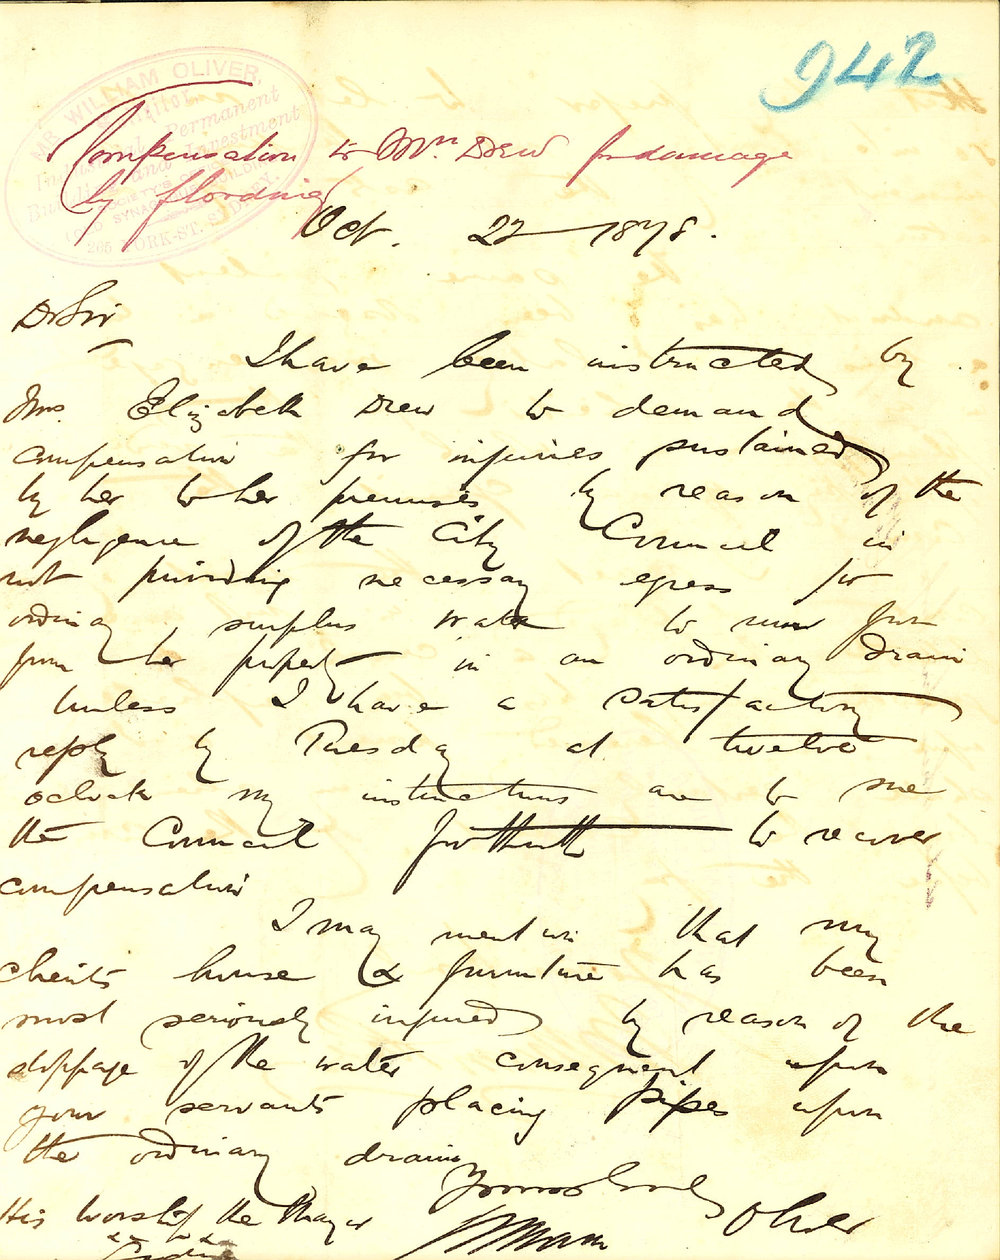 942
MR WILLIAM OLIVER,
Solicitor
Industrial & Permanent
Building and Investment
SOCIETY'S
(OLD SYNAGOGUE BUILDING)
265 YORK-ST. SYDNEY.
Compensation to Mrs Drew for damage
by flooding
Oct. 22 1878.
Dr Sir
I have been instructed by
Mrs. Elizabeth Drew to demand
compensation for injuries sustained
by her to her premises by reason of the
negligence of the City Council in
not providing necessary egress for
ordinary surplus water to run from
from her property in an ordinary drain
unless I have a satisfactory
reply by Tuesday at twelve
oclock my instructions are to sue
the Council forthwith to recover
compensation
I may mention that my
clients house & furniture has been
most seriously injured by reason of the
stoppage of the water consequent upon
your servants placing pipes upon
the ordinary drain
Yours truly
William Oliver
His Worship the Mayor
Sydney